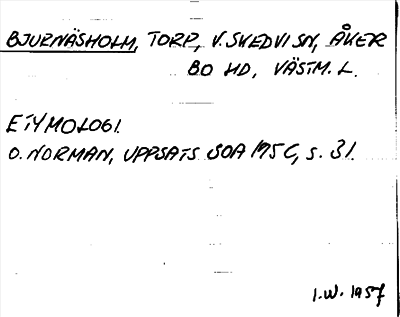 BJURNÄSHOLM, TORP, V. SKEDVI SN, ÅKER
BO HD, VÄSTM. L.
ETYMOLOGI.
O. NORMAN, UPPSATS SOA 175 C, S. 31.
I.W. 1957